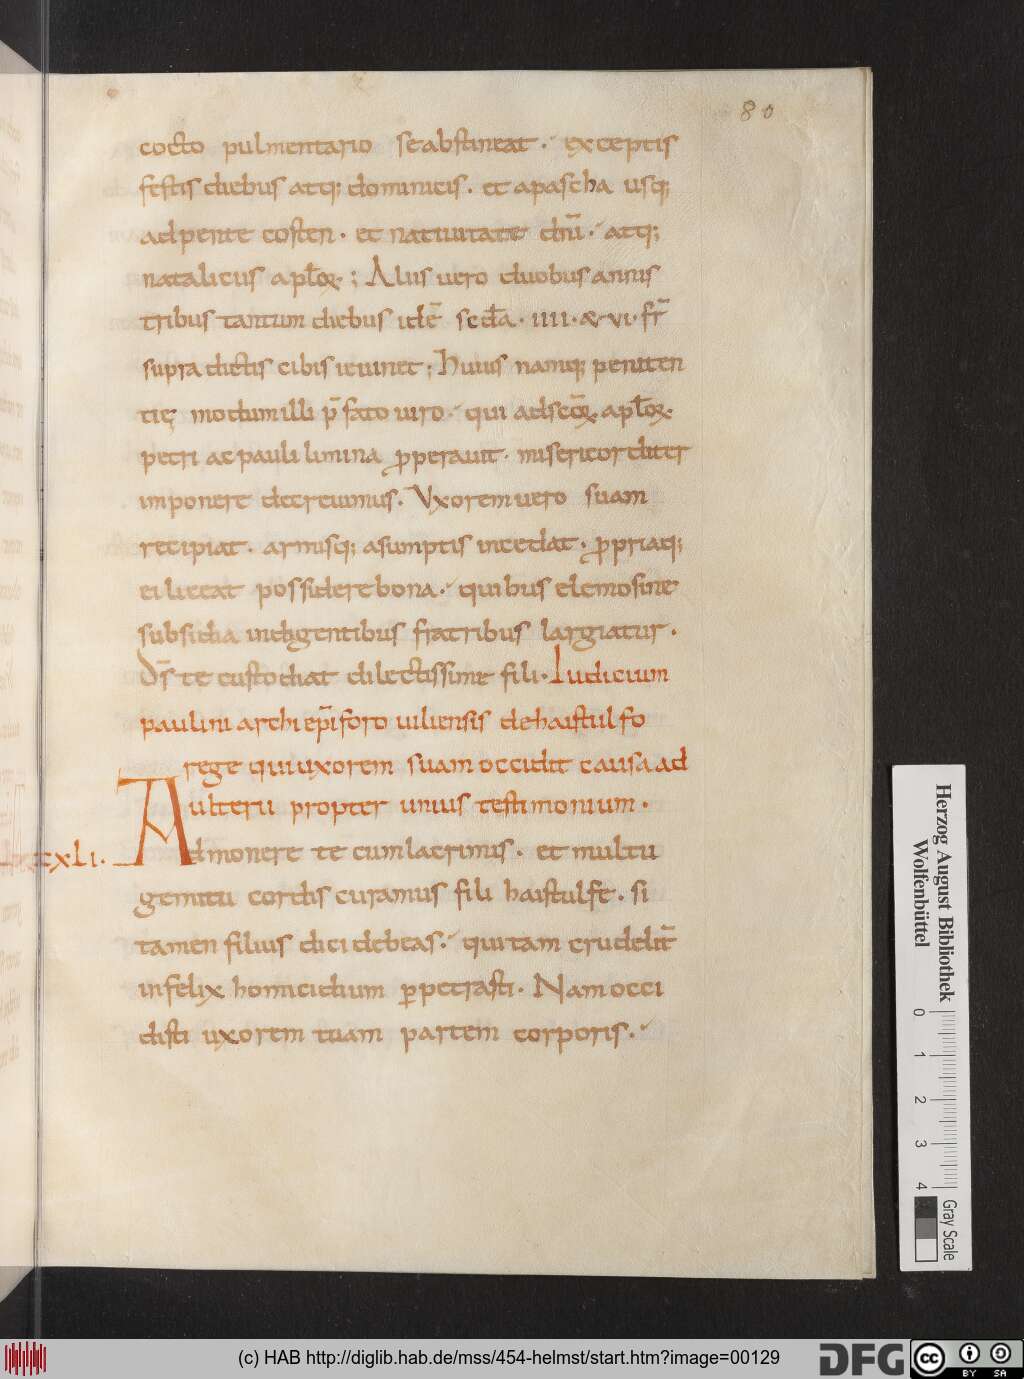 80
cocto pulmentario se abstineat. exceptis
festis diebus atq; dominicis. et a pascha usq;
ad pente costen. et natiuitate dnī. atq;
natalicius apl̄oꝝ; Aliis uero duobus annis
tribus tantum diebus idē sec̄da. iiii. & vi. fr̄
supra dictis cibis ieiunet; Huius namq; peniten
tię modum illi p̄fato uiro. qui ad sc̄oꝝ apl̄oꝝ
petri ac pauli limina ꝓperauit. misericorditer
imponere decreuimus. Vxorem uero suam
recipiat. armisq; asumptis incedat. ꝓpriaq;
ei liceat possidere bona. quibus elemosine
subsidia indigentibus fratribus largiatur.
Ds̄ te custodiat dilectissime fili. Iudicium
paulini archiep̄i foro iuliensis de haistulfo
rege qui uxorem suam occidit causa ad
ulterii propter unius testimonium.
cxli. Admonere te cum lacrimis. et multu
gemitu cordis curamus fili haistulfe. si
tamen filius dici debeas. qui tam crudelit̄
infelix homicidium ꝑpetrasti. Nam occi
disti uxorem tuam partem corporis.
Herzog August Bibliothek
Wolfenbüttel
0 1 2 3 4
Gray Scale
(c) HAB http://diglib.hab.de/mss/454-helmst/start.htm?image=00129
DFG
cc BY SA